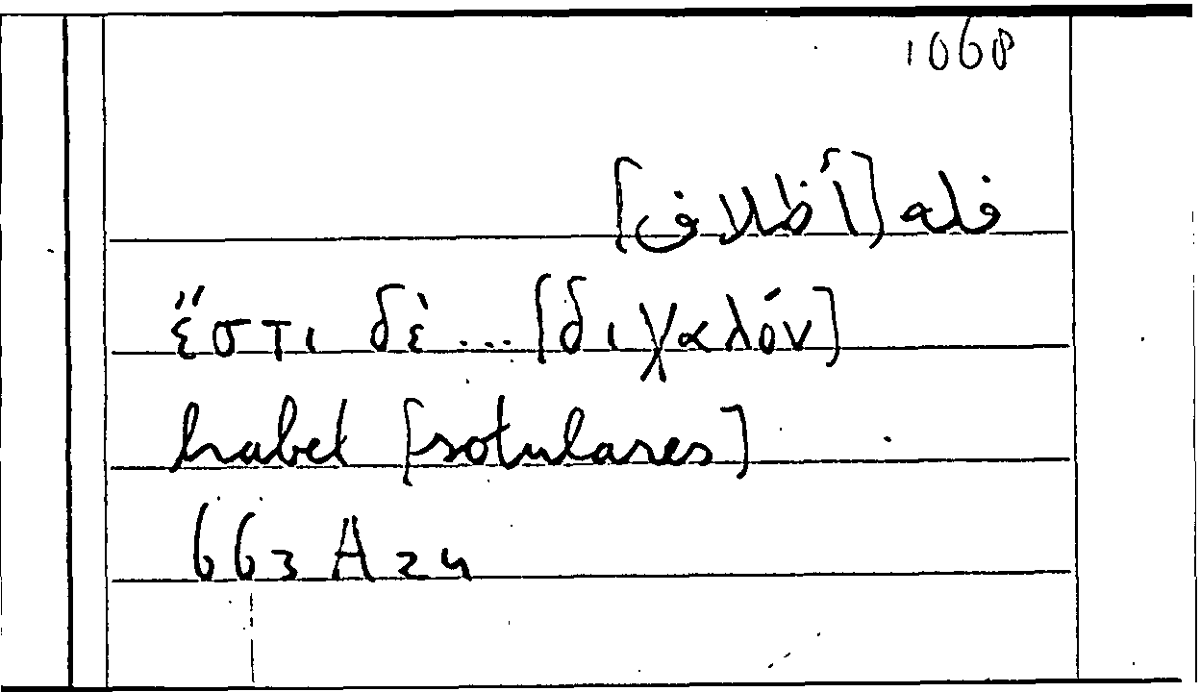 1068
فله [أظلاف]
ἔστι δὲ... [διχαλόν]
habet [sotulares]
663 A 24